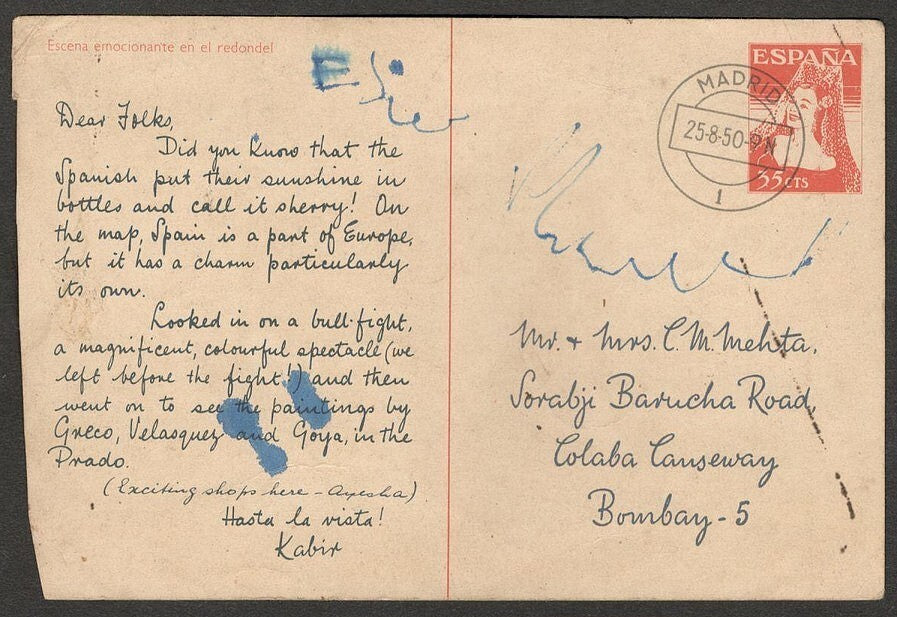 Escena emocionante en el redondel
Dear Folks,
Did you know that the
Spanish put their sunshine in
bottles and call it sherry! On
the map, Spain is a part of Europe,
but it has a charm particularly
its own.
Looked in on a bull-fight,
a magnificent, colourful spectacle (we
left before the fight!) and then
went on to see the paintings by
Greco, Velasquez and Goya, in the
Prado.
(Exciting shops here - Ayesha)
Hasta la vista!
Kabir
ESPAÑA
35 CTS
MADRID
25-8-50
1
Mr. + Mrs. C. M. Mehta,
Sorabji Barucha Road,
Colaba Causeway
Bombay - 5